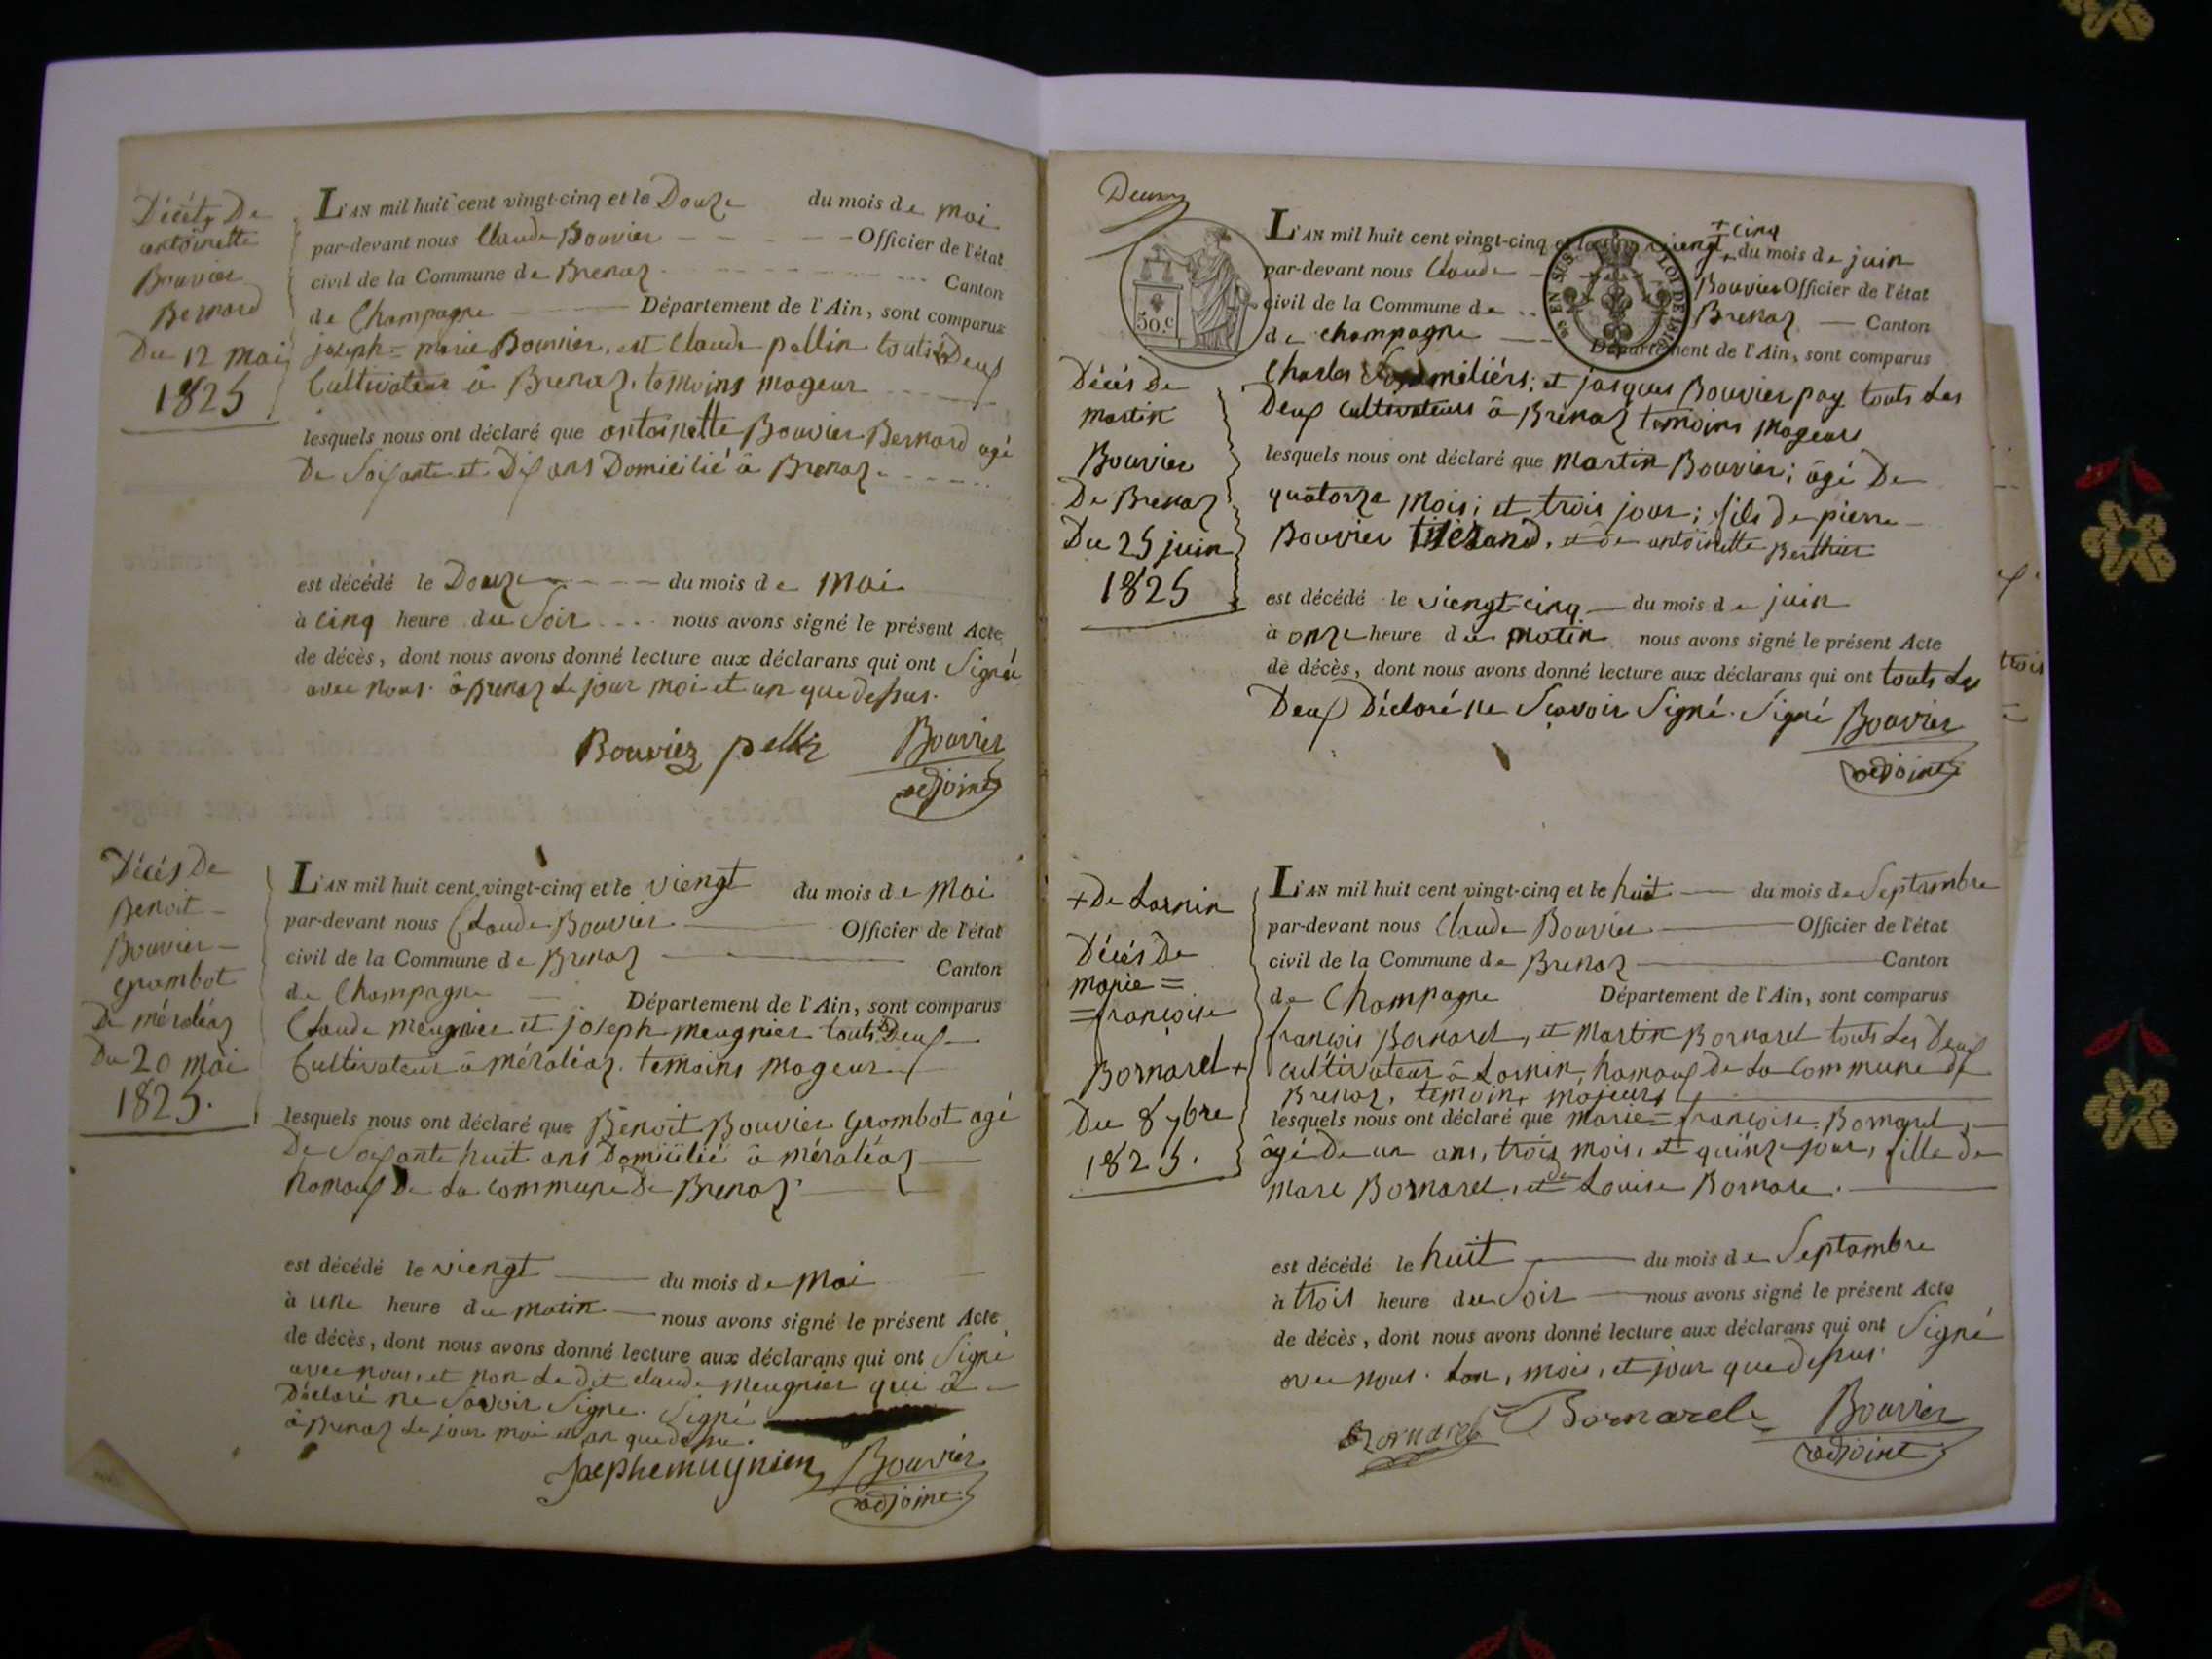 Décès De
antoinette
Bouvier
Bernard
Du 12 mai
1825
L'AN mil huit cent vingt-cinq et le Douze du mois de mai
par-devant nous Claude Bouvier Officier de l'état
civil de la Commune de Brenaz Canton
de Champagne Département de l'Ain, sont comparus
joseph = marie Bouvier, et Claude pellin touts les Deux
Cultivateur â Brenaz. temoins mageur
lesquels nous ont déclaré que antoinette Bouvier Bernard agé
De Soixante et Dix ans Domicilié â Brenaz
est décédé le Douze du mois de mai
à cinq heure du Soir nous avons signé le présent Acte
de décès, dont nous avons donné lecture aux déclarans qui ont Signé
avec nous. â Brenaz Le jour moi et an que dessus.
Bouvier pellin Bouvier
adjoint
Décés De
Benoit
Bouvier
grombot
De méraléaz
Du 20 mai
1825.
L'AN mil huit cent vingt-cinq et le viengt du mois de mai
par-devant nous Claude Bouvier Officier de l'état
civil de la Commune de Brenaz Canton
de Champagne Département de l'Ain, sont comparus
Claude meugnier et joseph meugnier touts les Deux
Cultivateur â méraléaz. temoins mageur
lesquels nous ont déclaré que Benoit Bouvier grombot agé
De Soixante huit ans Domicilié â méraléaz
hamaux De La commune De Brenaz
est décédé le viengt du mois de mai
à une heure du matin nous avons signé le présent Acte
de décès, dont nous avons donné lecture aux déclarans qui ont Signé
avec nous, et non Le Dit claude meugnier qui â
Déclaré ne Savoir Signe. Signé
â Brenaz Le jour moi et an que dessu.
Josephe mugnier Bouvier
adjoint
L'AN mil huit cent vingt-cinq et le viengt + cinq du mois de juin
par-devant nous Claude Bouvier Officier de l'état
civil de la Commune de Brenaz Canton
de champagne Département de l'Ain, sont comparus
50.c
EN SUS LOI DE 1816
Décés De
martin
Bouvier
De Brenaz
Du 25 juin
1825
Charles méliérs; et jasques Bouvier pay touts Les
Deux cultivateurs â Brenaz temoins mageurs
lesquels nous ont déclaré que martin Bouvier; âgé De
quatorze mois; et trois jour; fils de pierre
Bouvier tiserand, et de antoinette Berthier
est décédé le viengt-cinq du mois de juin
à onze heure du matin nous avons signé le présent Acte
de décès, dont nous avons donné lecture aux déclarans qui ont touts Les
Deux Décloré ne Scavoir Signé. Signé Bouvier
adjoint
+ De Lornin
Décés De
marie =
= françoise
Bornarel +
Du 8 7bre
1825.
L'AN mil huit cent vingt-cinq et le huit du mois de Septambre
par-devant nous Claude Bouvier Officier de l'état
civil de la Commune de Brenaz Canton
de Champagne Département de l'Ain, sont comparus
françois Bornarel, et Martin Bornarel touts Les Deux
cultivateur â Lornin, hamaux De La commune De
Brenaz, temoins majeurs
lesquels nous ont déclaré que marie = françoise Bornarel,
âgé De un ans, trois mois, et quinze jour, fille De
Marc Bornarel, et de Louise Bornare.
est décédé le huit du mois de Septambre
à trois heure du Soir nous avons signé le présent Acte
de décès, dont nous avons donné lecture aux déclarans qui ont Signé
avec nous. Lan, mois, et jour que dessus.
Bornarel Bornarel Bouvier
adjoint
trois